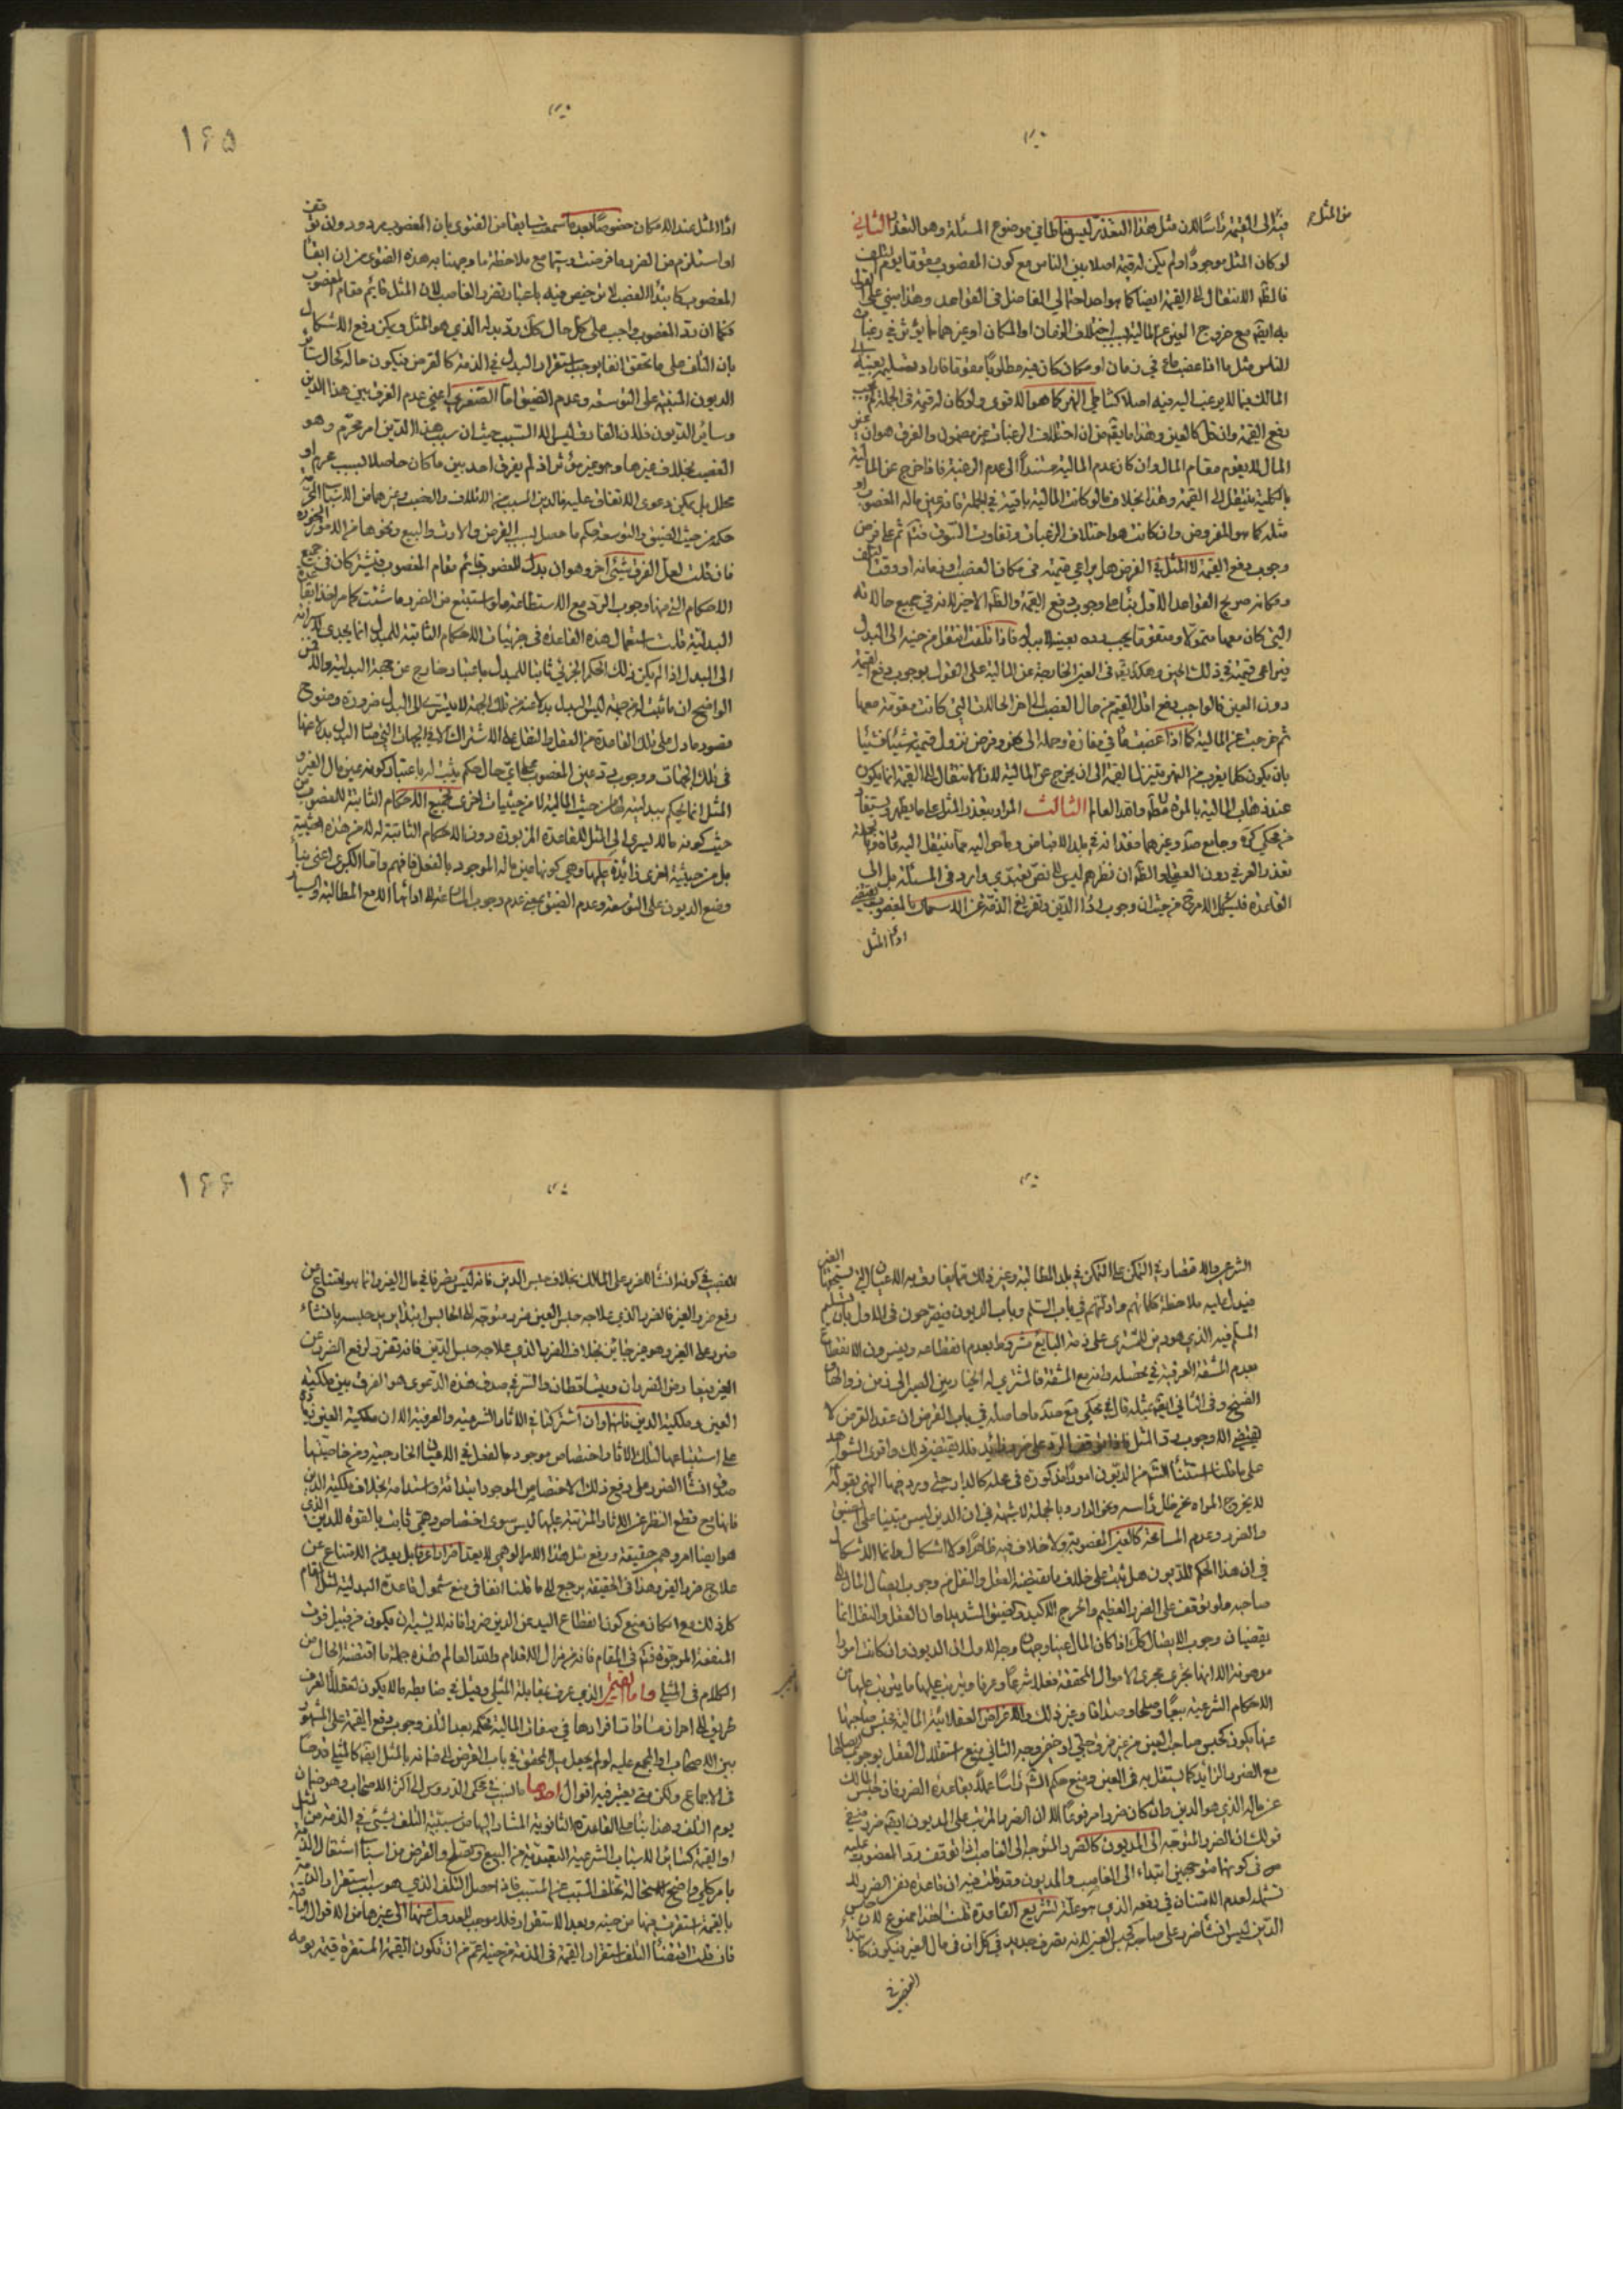 من المثل
فيه الى القيمة رأسًا لان مثل هذا التعذر ليس مناطا في موضوع المسئلة وهو التعذر الثاني
لو كان المثل موجودًا ولم يكن له قيمة اصلا بين الناس مع كون المغصوب متقوما يوم التلف
فالظ الانتقال الى القيمة ايضا كما هو احد احتمالي الفاضل في القواعد وهذا مبني على القول
به ايضا مع خروج العين عن المالية بسبب اختلاف الزمان او المكان او غيرهما مما يؤثر في رغبات
الناس مثل ما اذا غصب ماء في زمان او مكان كان فيه مطلوبًا متقوما فاراد تسليمه بعينه الى
المالك فيما لا يرغب اليه فيه اصلا كشاطي النهر كما هو الاقوى ولو كان له قيمة في الجملة لم يجب
دفع القيمة وان قل كالعين وهذا ما يقال من ان اختلاف الرغبات غير مضمون والفرق هو ان غير
المال لا يقوم مقام المال وان كان عدم المالية مستندًا الى عدم الرغبة فاذا خرج عن المالية
بالكلية ينتقل الى القيمة وهذا بخلاف ما لو كانت المالية باقية في الجملة فانه عين ماله المغصوب او
مثله كما هو المفروض وان كانت هو اختلاف الرغبات وتفاوت السوق فتدبر ثم على فرض
وجوب دفع القيمة لا المثل في الفرض هل يراعى قيمته في مكان الغصب او زمانه او وقت التلف
دون العين فالواجب دفع اقل القيم من حال الغصب الى اخر الحالات التي كانت متقومة معها
ثم خرجت عن المالية كما اذا غصب ماء في مفازة وحمله الى نهر وفرض نزول قيمته شيئا فشيئا
بان يكون كلما يقرب من النهر يتنزل القيمة الى ان يخرج عن المالية لان الانتقال الى القيمة انما يكون
عند ذهاب المالية بالمرة فتأمل والله العالم الثالث المراد بتعذر المثل على ما يظهر ويستفاد
تعذر العرفي دون العقلي والظ ان نظرهم ليس الى نص تعبدي وارد في المسئلة بل الى
القاعدة فليشكل الامر ح من حيث ان وجوب اداء الدين وتفريغ الذمة عن الاستعمال بالمغصوب يقتضي
اداء المثل
۱۶۵
اداء المثل عند الامكان خصوصًا بعد ما سمعت سابقا من الفتوى بان المغصوب مردود وان توقف
او استلزم من الضرر ما فرضت ولا سيما مع ملاحظة ما وجهنا به هذه الفتوى من ان ابقاء
المغصوب كابتداء الغصب لا ترخيص فيه باعتبار تضرر الغاصب لان المثل قايم مقام المغصوب
فكما ان رد المغصوب واجب على كل حال كك رد بدله الذي هو المثل ويمكن دفع الاشكال
بان التلف على ما تحقق انفا يوجب استقرار البدل في الذمة كالقرض فيكون حاله كحال سائر
الديون المبنية على التوسعة وعدم الضيق اما الصغرى اعني عدم الفرق بين هذا الدين
وسائر الديون فلان الفارق ليس الا السبب حيث ان سبب هذا الدين امر محرم وهو
الغصب بخلاف غيرها وهو غير مؤثر اذ لم يفرق احد بين ما كان حاصلا بسبب محرم او
محلل بل يمكن دعوى الاتفاق عليه فالدين المسبب من الاتلاف والغصب وغيرهما من الاسباب المحرمة
حكمه من حيث الضيق والتوسعة حكم ما حصل بسبب القرض والارث والبيع ونحوها من الامور المجوزة
فان قلت لعل الفرق شيئ اخر وهو ان بدل المغصوب قائم مقام المغصوب فيشتركان في جميع
الاحكام التي منها وجوب الرد مع الاستطاعة على ما استتبع من الضرر ما شئت كما مر اخذا بقاعدة
البدلية قلت استعمال هذه القاعدة في جزئيات الاحكام الثابتة للمبدل انما يجدي
الى البدل اذا لم يكن ذلك الحكم الجزئي ثابتا للمبدل باعتبار خارج عن جهة البدلية
الواضح ان ما ثبت له من جهة ليس البدل بدلا عنه من تلك الجهة لا يسري الى البدل ضرورة وضوح
قصور ما دل على تلك القاعدة من العقل والنقل على الاشتراك الا في الجهات التي صار البدل بدلا عنها
في تلك الجهات ووجوب رد عين المغصوب على اي حال حكم يثبت له باعتبار كونه عين مال الغير و
المثل انما يحكم ببدليته لها من حيث المالية لا من حيثيات اخرى فجميع الاحكام الثابتة للمغصوب من
حيث كونه مالا يسري الى المثل للقاعدة المزبورة دون الاحكام الثابتة له لا من هذه الحيثية
بل من حيثية اخرى زائدة عليها وهي كونها عين ماله الموجود بالفعل فافهم واما الكبرى اعني بناء
وضع الديون على التوسعة وعدم الضيق بمعنى عدم وجوب المسارعة الى ادائها الا مع المطالبة واليسار
الشرعي والاقتضاء في التمكن على التمكن في بلد المطالبة وغير ذلك مما يفارق به الاعيان التي يستحقها الغير
فيدل عليه ملاحظة كلماتهم وادلتهم في باب السلم وباب الديون فيصرحون في الاول بان السلم
المسلم فيه الذي هو دين للمشتري على ذمة البايع مشروط بعدم انقطاعه ويفسرون الانقطاع
بعدم المشقة العرفية في تحصيله وانه مع المشقة فالمشتري له الخيار بين الصبر الى زمن زوالها او
الفسخ وفي الثاني ايضا بمثله قال في محكي مع صد ما حاصله في باب القرض ان عقد القرض لا
يقتضي الا وجوب رد المثل
على ما قلنا استثناء الشارع من الديون امورًا مذكورة في محله كالدار حتى ورد فيها النهي بقوله
لا يخرج المرء من ظل رأسه وعن الدار وبالجملة لا شبهة في ان الدين ليس مبنيا على الضيق
والضرر وعدم المسامحة كالعين المغصوبة ولا خلاف فيه ظاهرًا ولا اشكال وانما الاشكال
في ان هذا الحكم للديون هل يثبت على خلاف ما يقتضيه العقل والنقل من وجوب ايصال المال الى
صاحبه ولو توقف على الضرر العظيم والحرج الاكيد والضيق الشديد ام لا العقل والنقل انما
يقضيان وجوب الايصال كك اذا كان المال عينا وجهان وجه الاول ان الديون وان كانت امورا
موهومة الا انها تجري مجرى الاموال المحققة فعلا شرعًا وعرفا ويترتب عليها ما يترتب عليها من
الاحكام الشرعية بيعًا وصلحا وصداقا وغير ذلك والاغراض العقلائية المالية فحبس صاحبها
عنها يكون كحبس صاحب العين من غير فرق جلي او خفي وجه الثاني منع استقلال العقل بوجوب ايصالها
مع الضرر الزايد كما يستقل به في العين ومنع حكم الشرع رأسًا عملا بقاعدة الضرر فان حبس المالك
عن ماله الذي هو الدين وان كان ضررا مرفوعًا الا ان الضرر المترتب على المديون ايضا ضرر منفي
قولك ان الضرر المتوجه الى المديون كالضرر المتوجه الى الغاصب اذا توقف رد المغصوب عليه
من في كونهما متوجهين ابتداء الى الغاصب والمديون وقد قلت فيه ان قاعدة نفي الضرر لا
تشمله لعدم الامتنان في رفعه الذي هو علة تشريع القاعدة قلت هذا ممنوع لان حبس
الدين ليس انشاء ضرر على صاحبه كحبس العين لانه تصرف جديد في كل ان في مال الغير فيكون كابتداء
الغصب في
۱۶۶
الغصب في كونه انشاء للضرر على المالك بخلاف حبس الدين فانه ليس تصرفا في مال الغير وانما هو امتناع من
دفع ضرر الغير فالضرر الذي علاجه حبس العين ضرر متوجه الى الحابس ابتداء يريد حبسه بانشاء
ضرر على الغير وهو غير جائز بخلاف الضرر الذي علاجه حبس الدين فانه تضرر لرفع الضرر عن
الغير فيتعارض الضرران ويتساقطان والسر في صدق هذه الدعوى هو الفرق بين ملكية
العين وملكية الدين فانها وان اشتركتا في الاثار الشرعية والعرفية الا ان ملكية العين زيادة
على استتباعها لتلك الاثار اختصاص موجود بالفعل في الاعيان الخارجية ومن خاصيتها
صدق انشاء الضرر على رفع ذلك الاختصاص الموجود ابتداء واستدامة بخلاف ملكية الدين
فانها مع قطع النظر عن الاثار المترتبة عليها ليس سوى اختصاص وهمي ثابت بالقوة للدين الذي
هو ايضا امر وهمي حقيقة ورفع مثل هذا الامر الوهمي لا يعد اضرارا عرفا بل يعد من الامتناع عن
علاج ضرر الغير وهذا في الحقيقة يرجع الى ما قلنا انفا في منع شمول قاعدة البدلية لمثل المقام
كل ذلك مع امكان منع كون انقطاع اليد عن الدين ضررا فانه لا يشبه ان يكون من قبيل فوت
المنفعة المرجوة فتدبر في المقام فانه من مزال الاقدام والله العالم هذه جملة ما اقتضته الحال من
الكلام في المثلي واما القيمي الذي عرف بمقابلة المثلي وقيل في ضابطه ما لا يكون للعقلاء والعرف
طريق الى احراز مساوات افرادها في صفات المالية فحكمه بعد التلف وجوب دفع القيمة على المشهور
بين الاصحاب او المجمع عليه لو لم يجعل ميل المحقق في باب القرض الى ضمانه بالمثل ايضا كالمثلي قدحًا
في الاجماع ولكن متى يعتبر فيه اقوال احدها ما نسب في محكي الدروس الى اكثر الاصحاب وهو ضمان
يوم التلف وهذا بناء على القاعدة الثانوية المشار اليها من سببية التلف لشيئ في الذمة من المثل
او القيمة كسائر الاسباب الشرعية التعبدية من البيع والصلح والقرض من اسباب اشتغال الذمة
بامر كلي واضح لاستحالة تخلف المسبب عن السبب فاذا حصل التلف الذي هو سبب استقرار الذمة
بالقيمة استقرت فيها من حينه وبعد الاستقرار فلا موجب للعدول عنها الى غيرها من الاقوال الباقية
فان قلت اقتضاء التلف استقرار القيمة في الذمة من حينه اعم من ان تكون القيمة المستقرة قيمة يومه